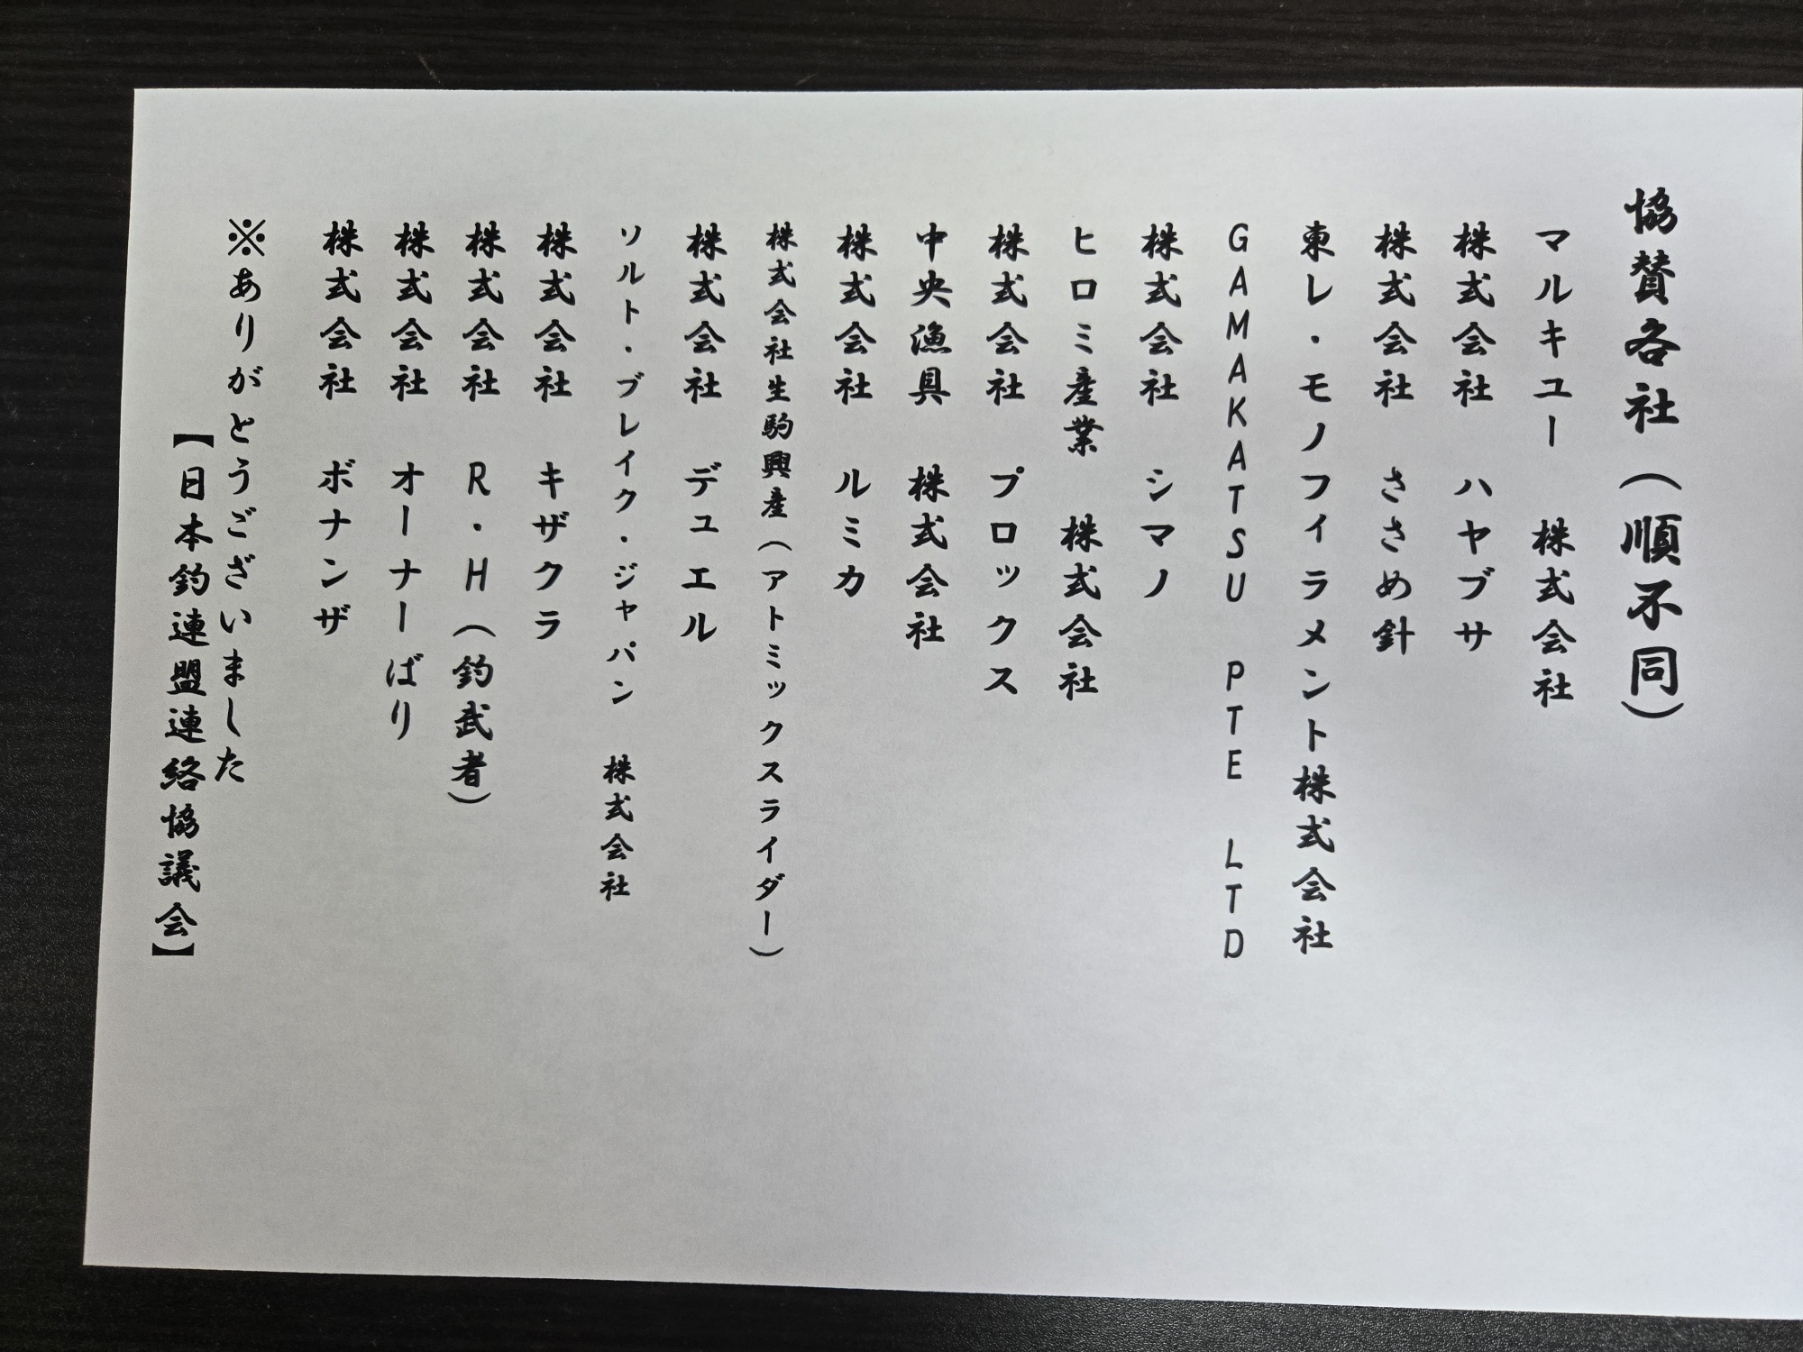 協賛各社（順不同）
マルキユー　株式会社
株式会社　ハヤブサ
株式会社　ささめ針
東レ・モノフィラメント株式会社
GAMAKATSU　PTE　LTD
株式会社　シマノ
ヒロミ産業　株式会社
株式会社　プロックス
中央漁具　株式会社
株式会社　ルミカ
株式会社生駒興産（アトミックスライダー）
株式会社　デュエル
ソルト・ブレイク・ジャパン　株式会社
株式会社　キザクラ
株式会社　R・H（釣武者）
株式会社　オーナーばり
株式会社　ボナンザ
※ありがとうございました
【日本釣連盟連絡協議会】